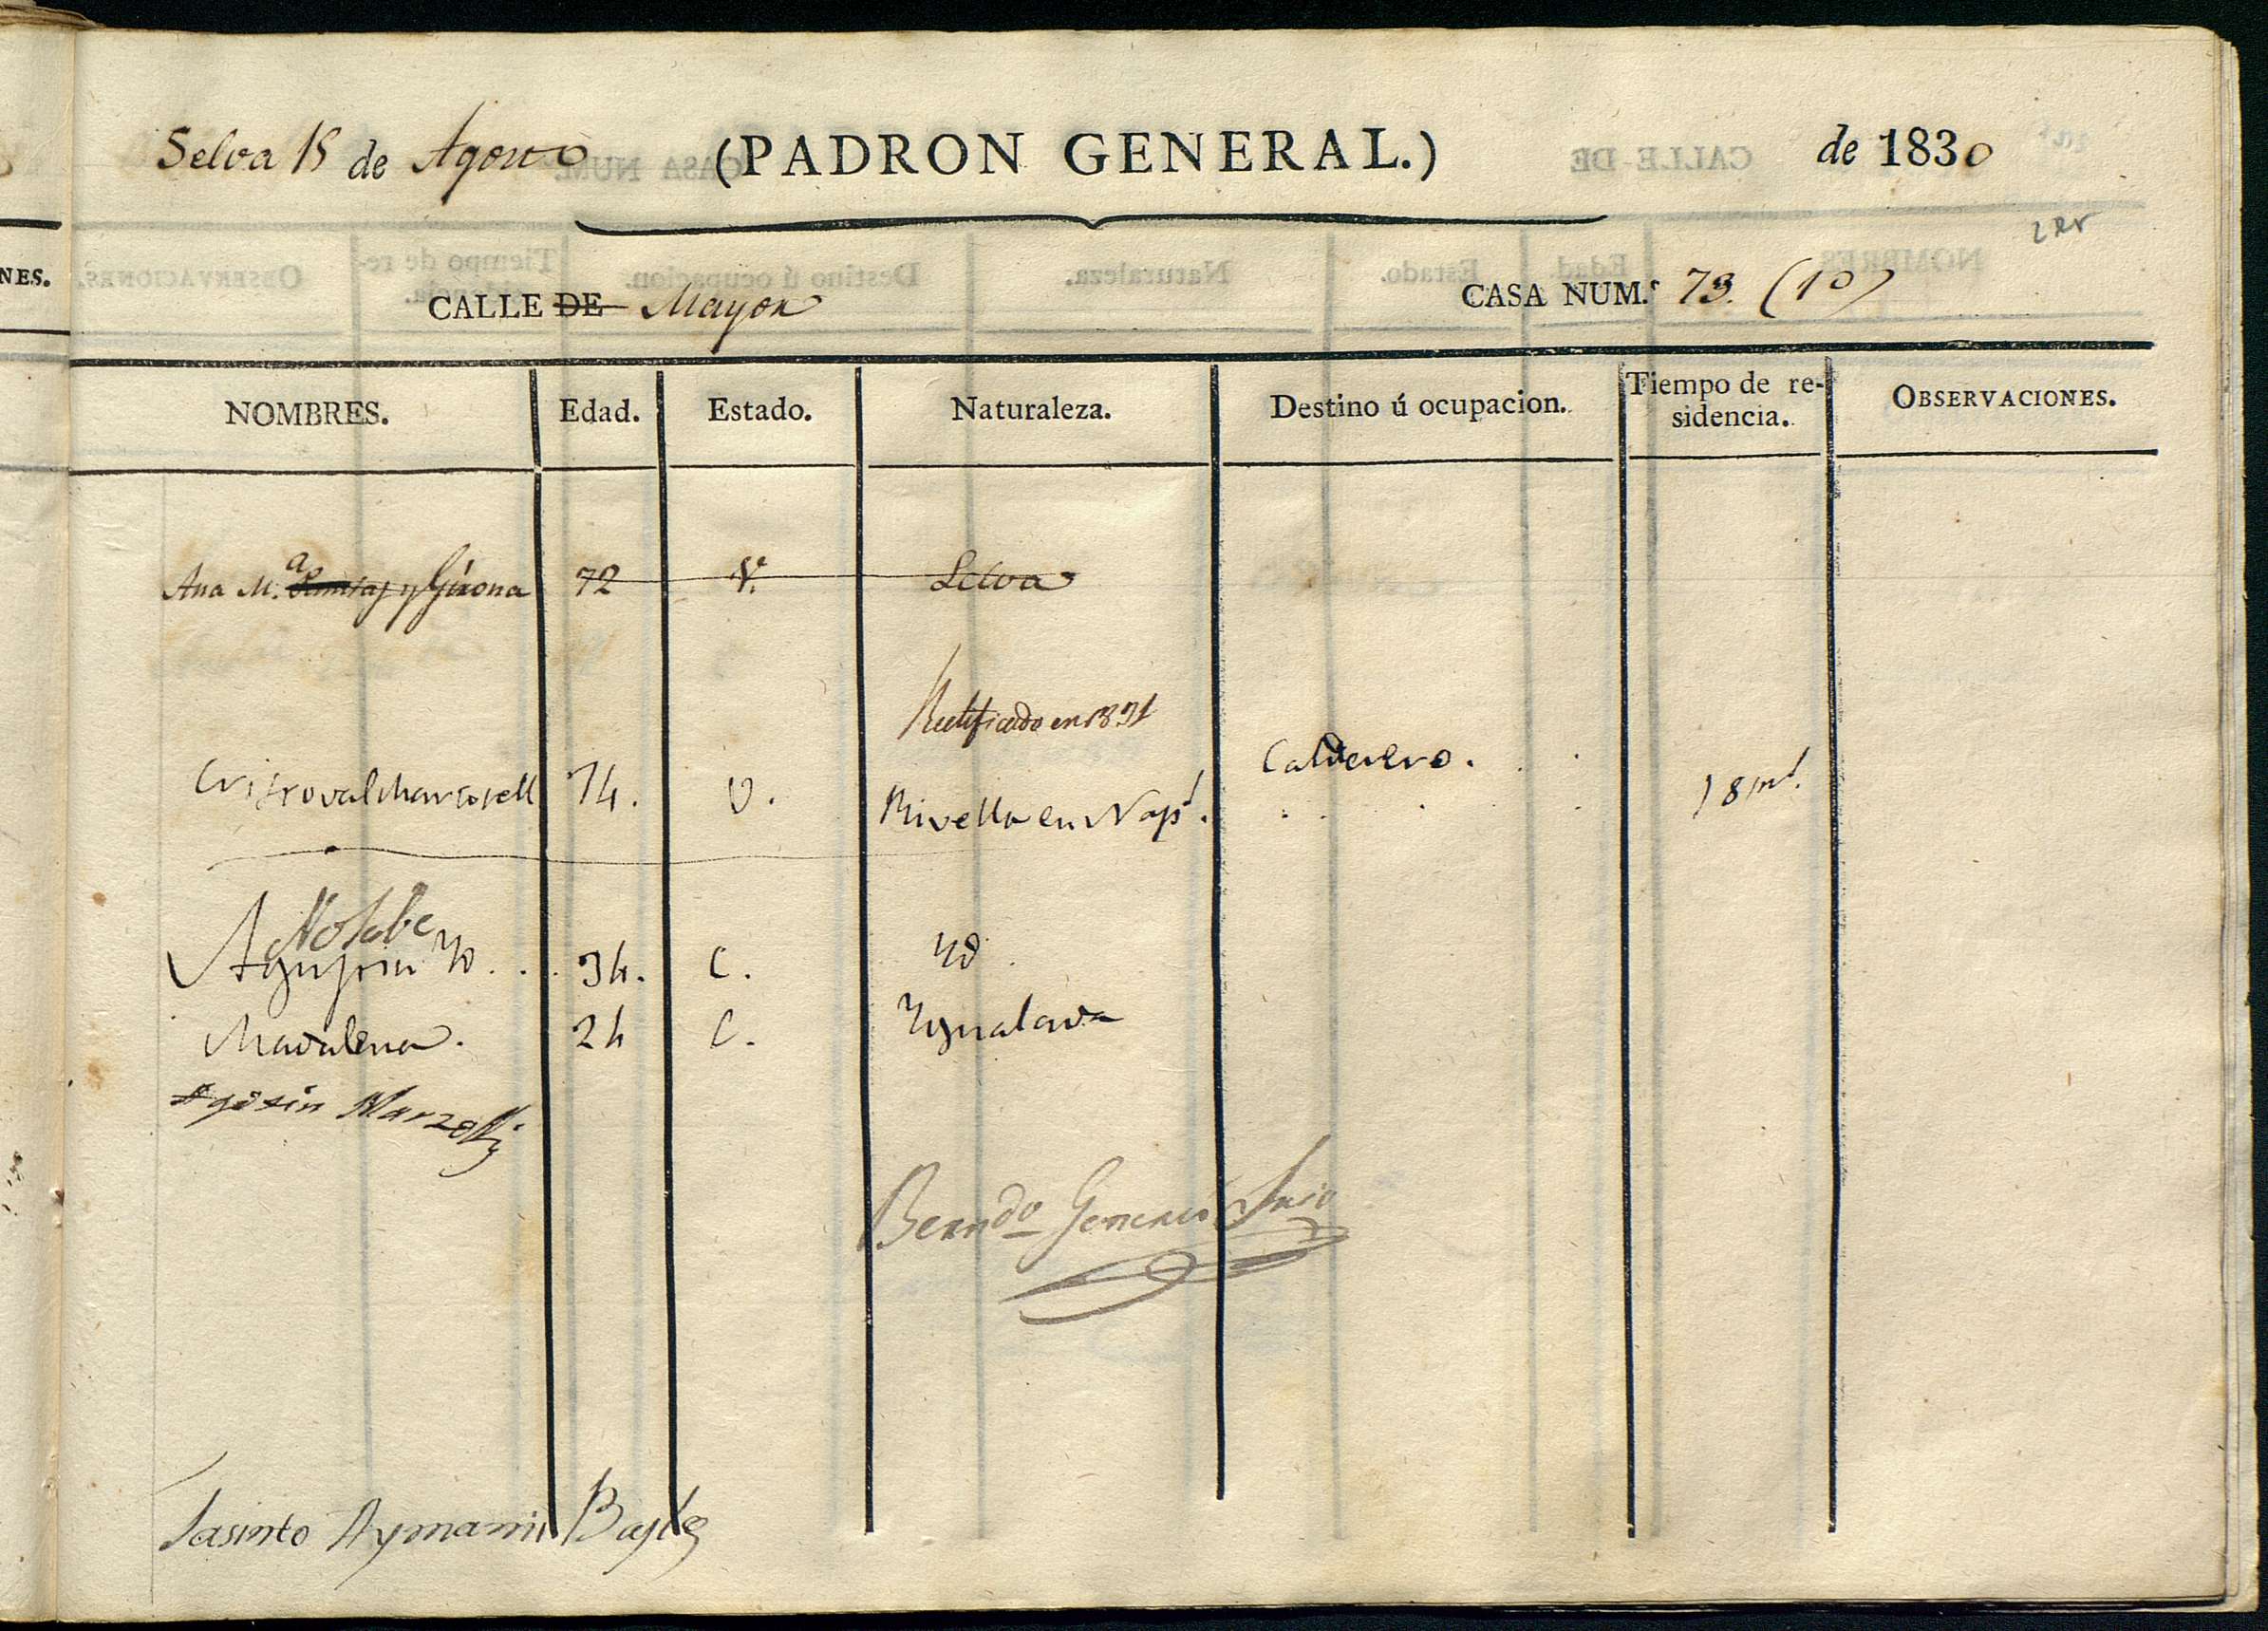 Selva 15 de Agosto (PADRON GENERAL.) de 1830
CALLE DE Mayor CASA NUM.º 73. (1º)
NES.
NOMBRES. Edad. Estado. Naturaleza. Destino ú ocupacion. Tiempo de re-
sidencia. OBSERVACIONES.
Ana M.ª y Girona 72 V.ª Selva
Rectificado en 1831
Cristoval Martorell 74. V. Rivello en Nap.s Calderero. 18 ms.
Agustin Yd. 34. C. Yd.
Madalena. 24 C. Ygualada
Agosin Marzelli
Berndo
Jasinto Aymami Bayle